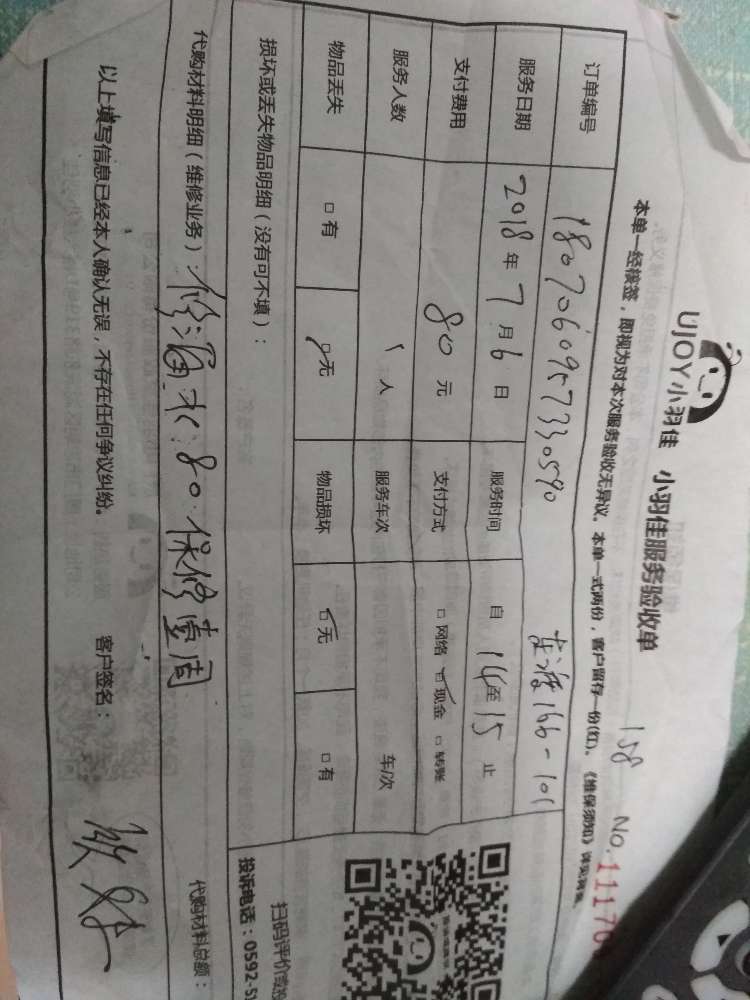 UJOY小羽佳 小羽佳服务验收单
158 No.11176
本单一经核签，即视为对本次服务验收无异议。本单一式两份，客户留存一份(红)。《维保须知》详见背面。
订单编号 1807060957330590 166-101
服务日期 2018年7月6日 服务时间 自14至15止
支付费用 80元 支付方式 □网络 □现金 □转账
服务人数 1人 服务车次 车/次
物品丢失 □有 □无 物品损坏 □无 □有
损坏或丢失物品明细（没有可不填）：
扫码评价或投
投诉电话：0592-5
代购材料明细（维修业务） 修漏水:80.保修壹周
代购材料总额：
以上填写信息已经本人确认无误，不存在任何争议纠纷。 客户签名：